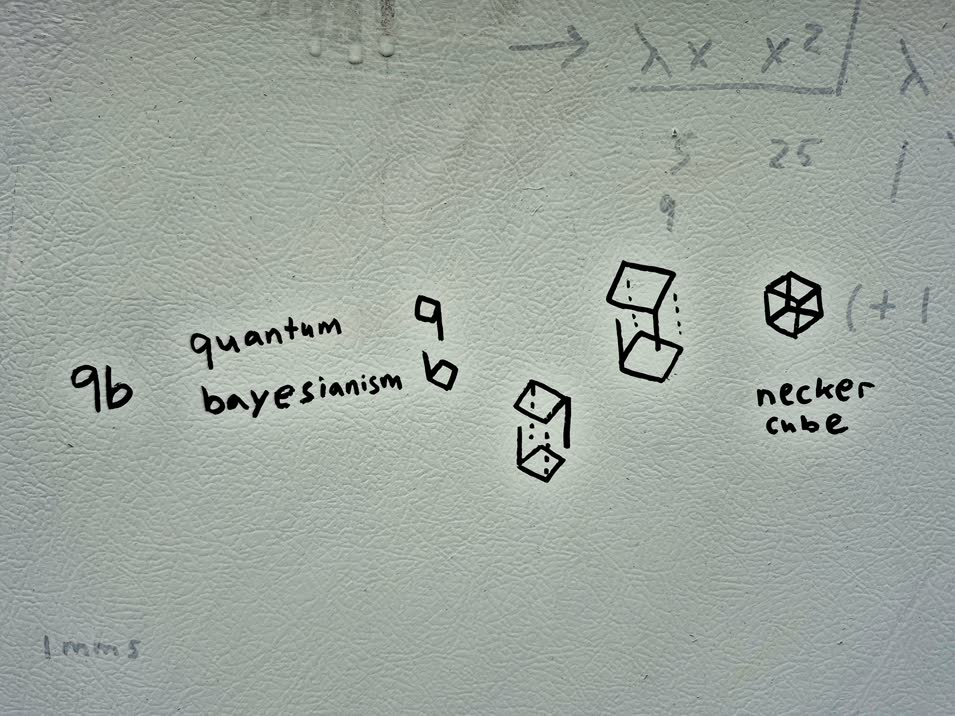 → λx x² λ
5 25 1
9
qb
quantum
bayesianism
q
b
(+ 1
necker
cube
1mms